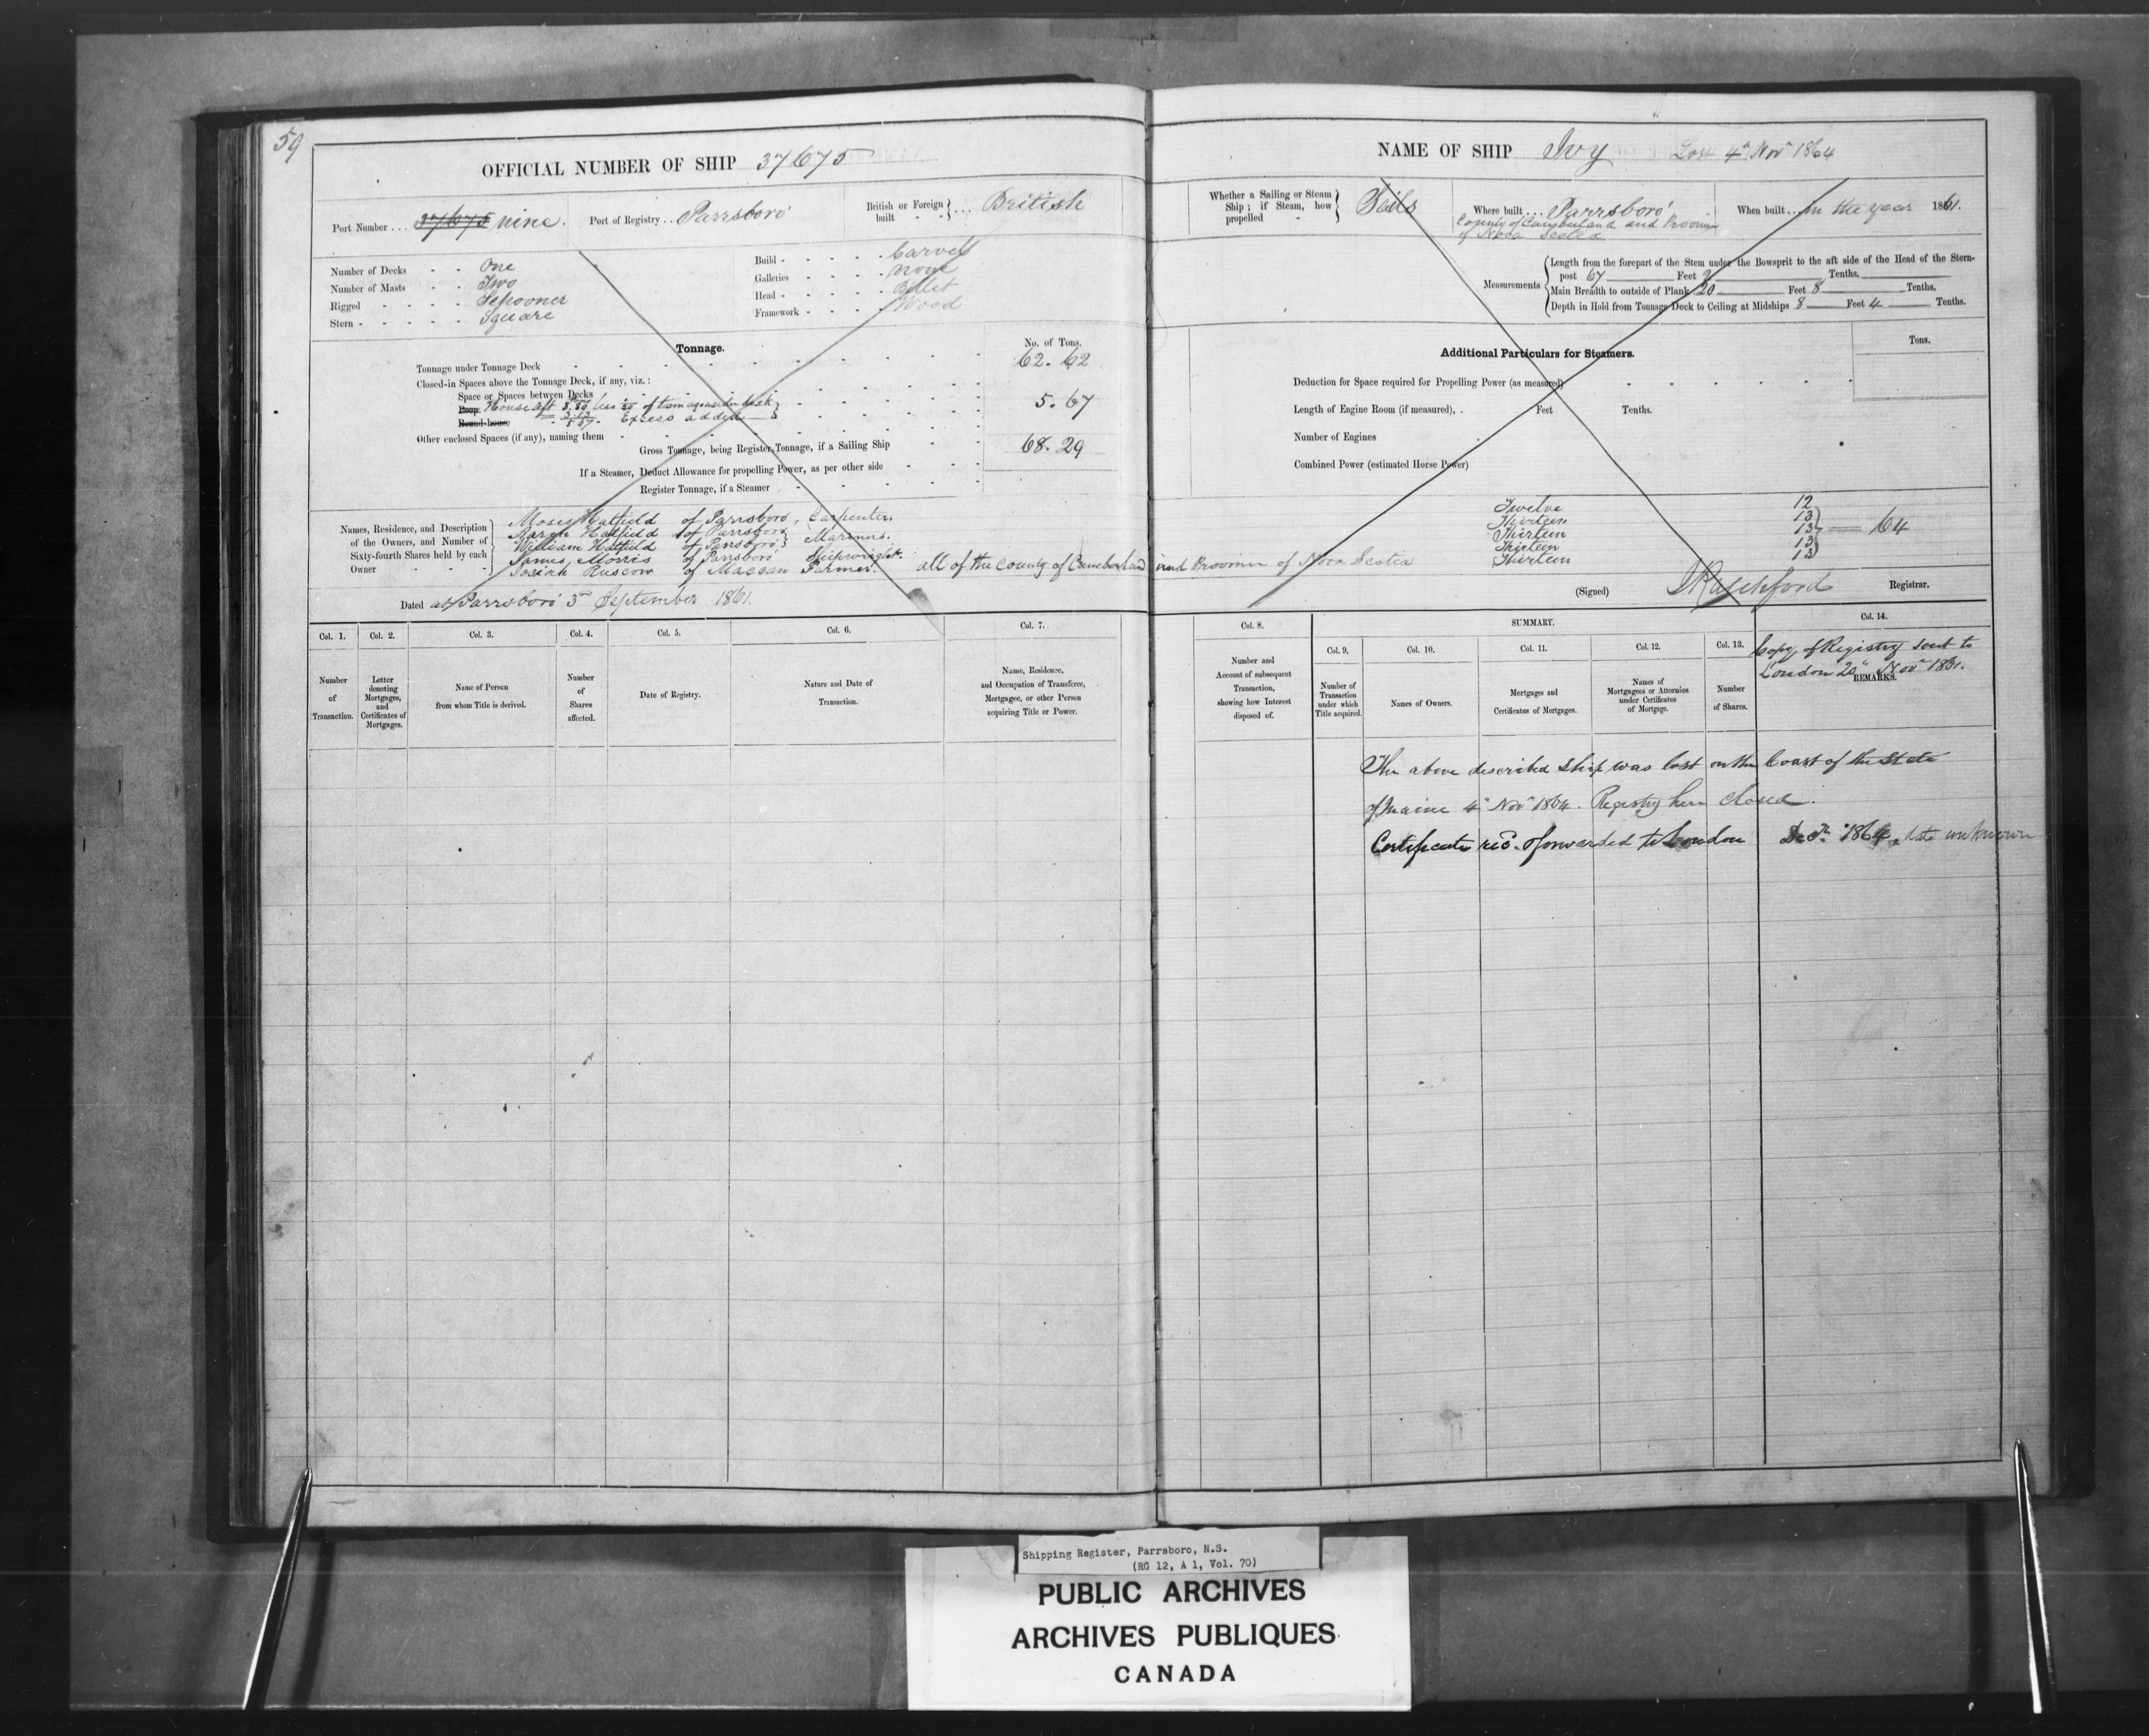 59
OFFICIAL NUMBER OF SHIP 37675
Port Number . . . 37675 nine. Port of Registry . . Parrsboro' British or Foreign built - - . . . British
Number of Decks - - One
Number of Masts - - Two
Rigged - - - - Schooner
Stern - - - - - Square
Build - - - - - Carvel
Galleries - - - - none
Head - - - - - Billet
Framework - - - - Wood
Tonnage. No. of Tons.
Tonnage under Tonnage Deck 62.62
Closed-in Spaces above the Tonnage Deck, if any, viz.:
Space or Spaces between Decks
Poop House aft 8.80 less of tonnage under deck 5.67
Round-house 5.67. Excess added
Other enclosed Spaces (if any), naming them
Gross Tonnage, being Register Tonnage, if a Sailing Ship 68.29
If a Steamer, Deduct Allowance for propelling Power, as per other side
Register Tonnage, if a Steamer
Names, Residence, and Description of the Owners, and Number of Sixty-fourth Shares held by each Owner
Moses Hatfield of Parrsboro, Carpenter.
Aaron Hatfield of Parrsboro
William Hatfield of Parrsboro } Mariners.
James Morris of Parrsboro Shipwright.
Josiah of Maccan Farmer. all of the County of Cumberland and Province of Nova Scotia
Dated at Parrsboro' 3rd September 1861.
Col. 1. Col. 2. Col. 3. Col. 4. Col. 5. Col. 6. Col. 7.
Number of Transaction.
Letter denoting Mortgages, and Certificates of Mortgages.
Name of Person from whom Title is derived.
Number of Shares affected.
Date of Registry.
Nature and Date of Transaction.
Name, Residence, and Occupation of Transferee, Mortgagee, or other Person acquiring Title or Power.
NAME OF SHIP Ivy Lost 4th Novr 1864
Whether a Sailing or Steam Ship; if Steam, how propelled - Sails
Where built . . . Parrsboro' County of Cumberland and Province of Nova Scotia
When built . . in the year 1861.
Measurements
Length from the forepart of the Stem under the Bowsprit to the aft side of the Head of the Stern-
post 67 Feet 2 Tenths,
Main Breadth to outside of Plank 20 Feet 8 Tenths,
Depth in Hold from Tonnage Deck to Ceiling at Midships 8 Feet 4 Tenths.
Additional Particulars for Steamers. Tons.
Deduction for Space required for Propelling Power (as measured)
Length of Engine Room (if measured), . Feet Tenths.
Number of Engines
Combined Power (estimated Horse Power)
Twelve 12
Thirteen 13
Thirteen 13 = 64
Thirteen 13
Thirteen 13
(Signed) Ratchford Registrar.
Col. 8. SUMMARY. Col. 14.
Col. 9. Col. 10. Col. 11. Col. 12. Col. 13.
Number and Account of subsequent Transaction, showing how Interest disposed of.
Number of Transaction under which Title acquired.
Names of Owners.
Mortgages and Certificates of Mortgages.
Names of Mortgagees or Attornies under Certificates of Mortgage.
Number of Shares.
Copy of Registry sent to
London 20th Novr 1861.
REMARKS.
The above described Ship was lost on the Coast of the State
of Maine 4th Novr 1864. Registry here closed.
Certificate recd. & forwarded to London Decr. 1864, date unknown
Shipping Register, Parrsboro, N.S.
(RG 12, A 1, Vol. 70)
PUBLIC ARCHIVES
ARCHIVES PUBLIQUES
CANADA